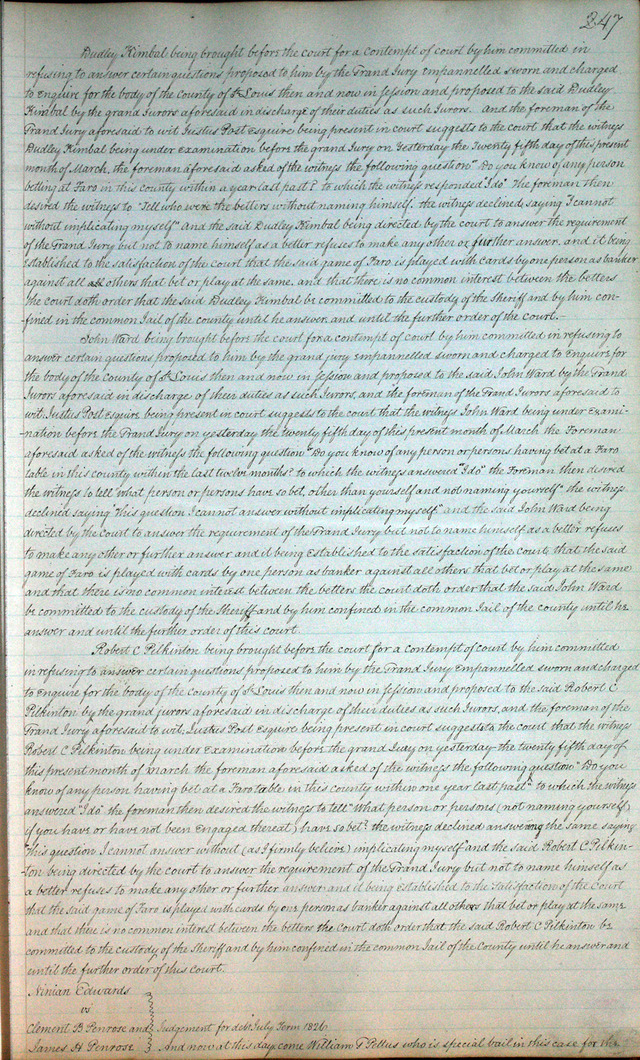 347
Dudley Kimbal being brought before the court for a contempt of court by him committed in
refusing to answer certain questions proposed to him by the Grand Jury empannelled sworn and charged
to enquire for the body of the County of St Louis then and now in session and proposed to the said Dudley
Kimbal by the grand Jurors aforesaid in discharge of their duties as such Jurors. And the foreman of the
Grand Jury aforesaid to wit Justus Post esquire being present in court suggests to the court that the witness
Dudley Kimbal being under examination before the grand Jury on Yesterday the Twenty fifth day of this present
month of March, the foreman aforesaid asked of the witness the following question "Do you know of any person
betting at Faro in this county within a year last past? to which the witness responded I do" The foreman then
desired the witness to "Tell who were the betters without naming himself, the witness declined, saying I cannot
without implicating myself" and the said Dudley Kimbal being directed by the court to answer the requirement
of the Grand Jury but not to name himself as a better refuses to make any other or further answer, and it being
established to the satisfaction of the court that the said game of Faro is played with cards by one person as banker
against all others that bet or play at the same, and that there is no common interest between the betters
the court doth order that the said Dudley Kimbal be committed to the custody of the Sheriff and by him con-
-fined in the common Jail of the county until he answer, and until the further order of the court.-
John Ward being brought before the court for a contempt of court by him committed in refusing to
answer certain questions proposed to him by the grand jury empannelled sworn and charged to Enquire for
the body of the County of St Louis then and now in session and proposed to the said John Ward by the Grand
Jurors aforesaid in discharge of their duties as such Jurors, and the foreman of the Grand Jurors aforesaid to
wit, Justus Post Esquire being present in court suggests to the court that the witness John Ward being under Exami-
-nation before the Grand Jury on yesterday the twenty fifth day of this present month of March the Foreman
aforesaid asked of the witness the following question "Do you know of any person or persons having bet at a Faro
table in this county within the last twelve months? to which the witness answered "I do" the Foreman then desired
the witness to tell "what person or persons have so bet, other than yourself and not naming yourself" the witness
declined saying "this question I cannot answer without implicating myself" and the said John Ward being
directed by the Court to answer the requirement of the Grand Jury but not to name himself as a better refuses
to make any other or further answer and it being established to the satisfaction of the court that the said
game of Faro is played with cards by one person as banker against all others that bet or play at the same
and that there is no common interest between the betters the court doth order that the said John Ward
be committed to the custody of the Sheriff and by him confined in the common Jail of the county until he
answer and until the further order of this court.
Robert C Pilkinton being brought before the court for a contempt of court by him committed
in refusing to answer certain questions proposed to him by the Grand Jury Empannelled sworn and charged
to Enquire for the body of the County of St Louis then and now in session and proposed to the said Robert C
Pilkinton by the grand jurors aforesaid in discharge of their duties as such Jurors, and the foreman of the
Grand Jury aforesaid to wit, Justus Post Esquire being present in court suggests to the court that the witness
Robert C Pilkinton being under Examination before the grand Jury on yesterday the twenty fifth day of
this present month of March the foreman aforesaid asked of the witness the following question "Do you
know of any person having bet at a Faro table in this county within one year last past" to which the witness
answered "I do" the foreman then desired the witness to tell "What person or persons (not naming yourself,
if you have or have not been Engaged thereat) have so bet? the witness declined answering the same saying
"this question I cannot answer without (as I firmly believe) implicating myself and the said Robert C Pilkin-
-ton being directed by the court to answer the requirement of the Grand Jury but not to name himself as
a better refuses to make any other or further answer and it being established to the satisfaction of the Court
that the said game of Faro is played with cards by one person as banker against all others that bet or play at the same
and that there is no common interest between the betters the court doth order that the said Robert C Pilkinton be
committed to the custody of the Sheriff and by him confined in the common Jail of the County until he answer and
until the further order of this court.
Ninian Edwards
vs
Clement B Penrose and Judgement for debt July Term 1826
James H Penrose And now at this day come William T Pettus who is special bail in this case for the